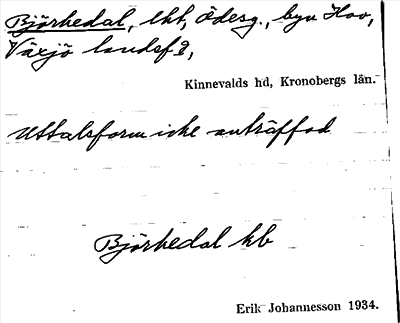 Björkedal, lht, Ödesg., byn Hov,
Växjö landsf.,
Kinnevalds hd, Kronobergs län.
Uttalsform icke anträffad
Björkedal kb
Erik Johannesson 1934.